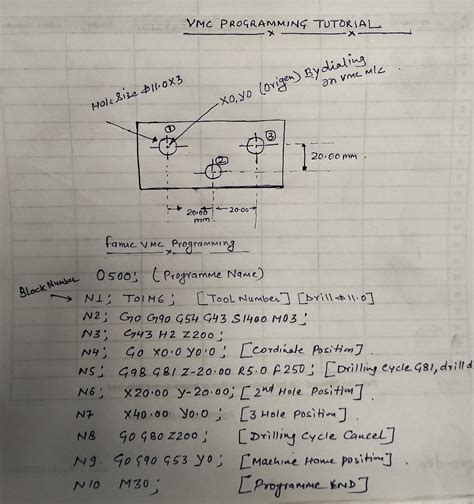 VMC PROGRAMMING TUTORIAL
Hole Size φ11.0X3
X0,Y0 (Origen) By dialing
on VMC M/c
①
②
③
20.00 mm
20.00
mm
20.00
fanuc VMC Programming
Block Number
O500; (Programme Name)
N1; T01M6; [Tool Number] [Drill φ11.0]
N2; G0 G90 G54 G43 S1400 M03;
N3; G43 H2 Z200;
N4; G0 X0.0 Y0.0; [Cordinate Position].
N5; G98 G81 Z-20.00 R5.0 F250; [Drilling Cycle G81, drill d
N6; X20.00 Y-20.00; [2nd Hole Position]
N7 X40.00 Y0.0; [3 Hole Position]
N8 G0 G80 Z200; [Drilling Cycle Cancel]
N9. G0 G90 G53 Y0; [Machine Home position]
N10 M30; [Programme END]